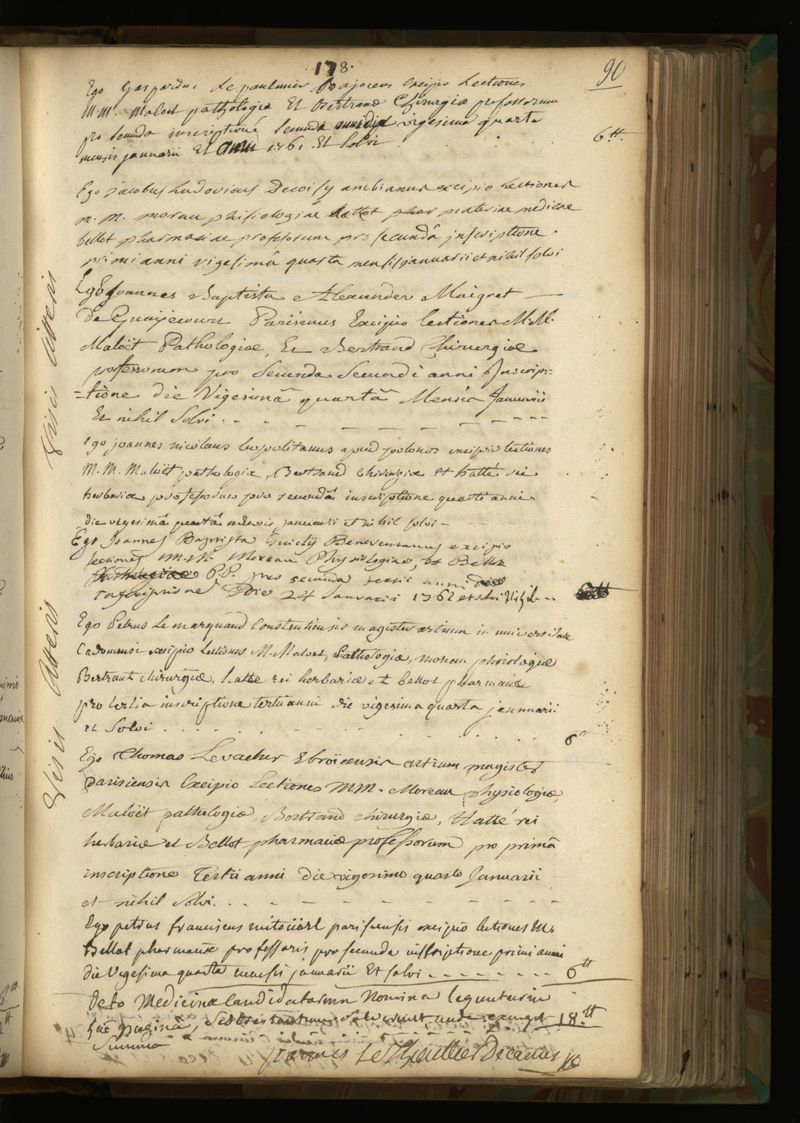 178.
90
Ego Gaspardus Lepaulmier Bajocens Excipio Lectiones
MM. Maloet pathologiæ Et Bertrand Chirurgiæ professorum
pro secunda inscriptione secundi vigesima quarta
mensis januarii Et 1761 Et solvi . . . 6tt.
Ego jacobus Ludovicus ambianus excipio lectiones
m. m. moreau phisiologiæ materiæ medicæ
bellot pharmaciæ professorum pro secundâ inscriptione
primi anni vigesimâ quarta mensis januarii et nihil solvi
Ego Joannes Baptista Alexander Maigret —
De Parisinus Excipio lectiones M.M.
Maloët Pathologiæ, Et Bertrand Chirurgiæ
professorum pro Secunda Secundi anni Inscrip-
-tione die Vigesimâ quartâ Mensis Januarii
Et nihil Solvi . . - - - - -
Ego joannes nicolaus leopolitanus apud polonos excipio lectiones
M. M. Maloët pathologiæ, Bertrand chirurgiæ et hatté rei
herbariæ professorum pro secundâ inscriptione quarti anni
die vigesimâ quartâ mensis januarii et nihil solvi -
Ego Joannes Baptista Beneventanus excipio
lectiones M.M. Moreau Physiologiæ, et Bellot
P.P. pro secunda tertii anni
inscriptione Die 24 Januarii 1761 et solvi Nihil
Ego Petrus Lemarquand Constantiensis magister artium in universitate
Cadomensi excipio Lectiones M. Maloet, Pathologiæ, moreau phisiologiæ
Bertrand chirurgiæ, hatté rei herbariæ et bellot pharmaciæ
pro tertia inscriptione tertii anni die vigesima quarta januarii
et Solvi . . . . . . . . . . 6tt
Ego Thomas Levacher Ebroïcensis artium magister
parisiensis Excipio Lectiones MM. Moreau physiologiæ,
Maloët pathologiæ, Bertrand chirurgiæ, Hatté rei
herbariæ et Bellot pharmaciæ professorum pro primâ
inscriptione Tertii anni die vigesimo quarto Januarii
et nihil solvi. . - - - - -
Ego petrus franciscus parisiensis excipio lectiones M.
Bellot pharmaciæ professoris pro secunda inscriptione primi anni
die Vigesima quarta mensis januarii Et solvi . . . . . . 6tt
Octo Medicinæ Candidatorum Nomina leguntur in
hâc paginâ, Sed tres tantum solverunt unde exurgit 18.tt
Summa
Decanus